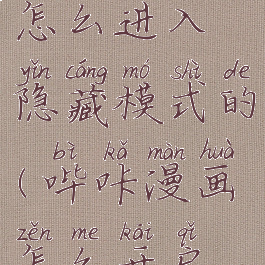 怎么进入
yǐn cáng mó shì de
隐藏模式的
bì kǎ màn huà
(哔咔漫画
zěn me kāi qǐ
怎么开启